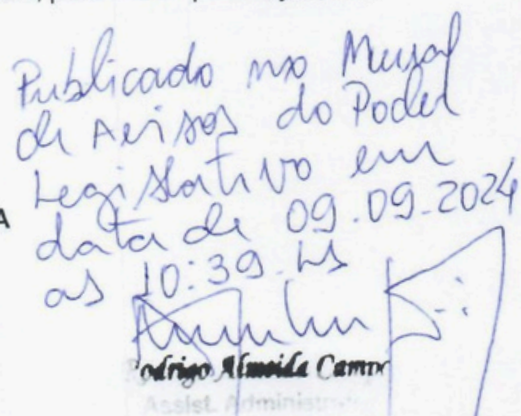 Publicado no Mural
de Avisos do Poder
Legislativo em
data de 09.09.2024
as 10:39 hs
A
Rodrigo Almeida Camp
Assist. Administra